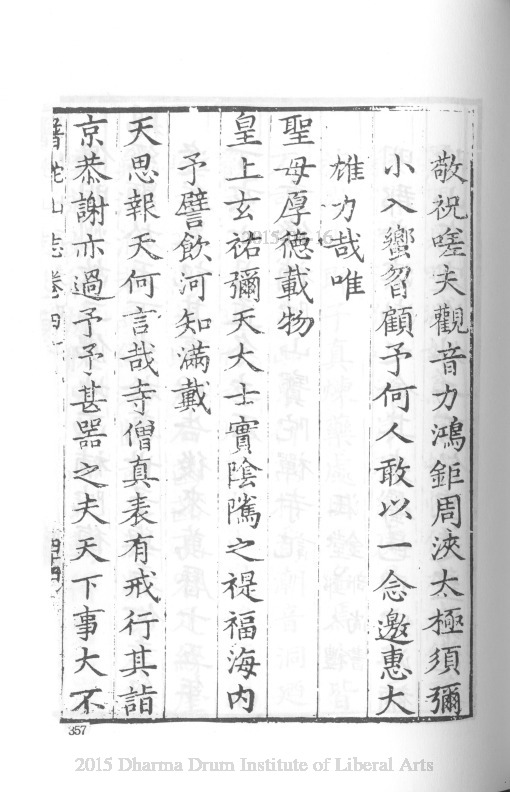 敬祝嗟夫觀音力鴻鉅周浹太極須彌
小入蠁曶顧予何人敢以一念邀惠大
雄力哉唯
聖母厚德載物
皇上玄祐彌天大士實陰隲之禔福海内
予譬飲河知滿戴
天思報天何言哉寺僧真表有戒行其詣
京恭謝亦過予予甚器之夫天下事大不
普陀山志卷四
四十四
357
2015 Dharma Drum Institute of Liberal Arts